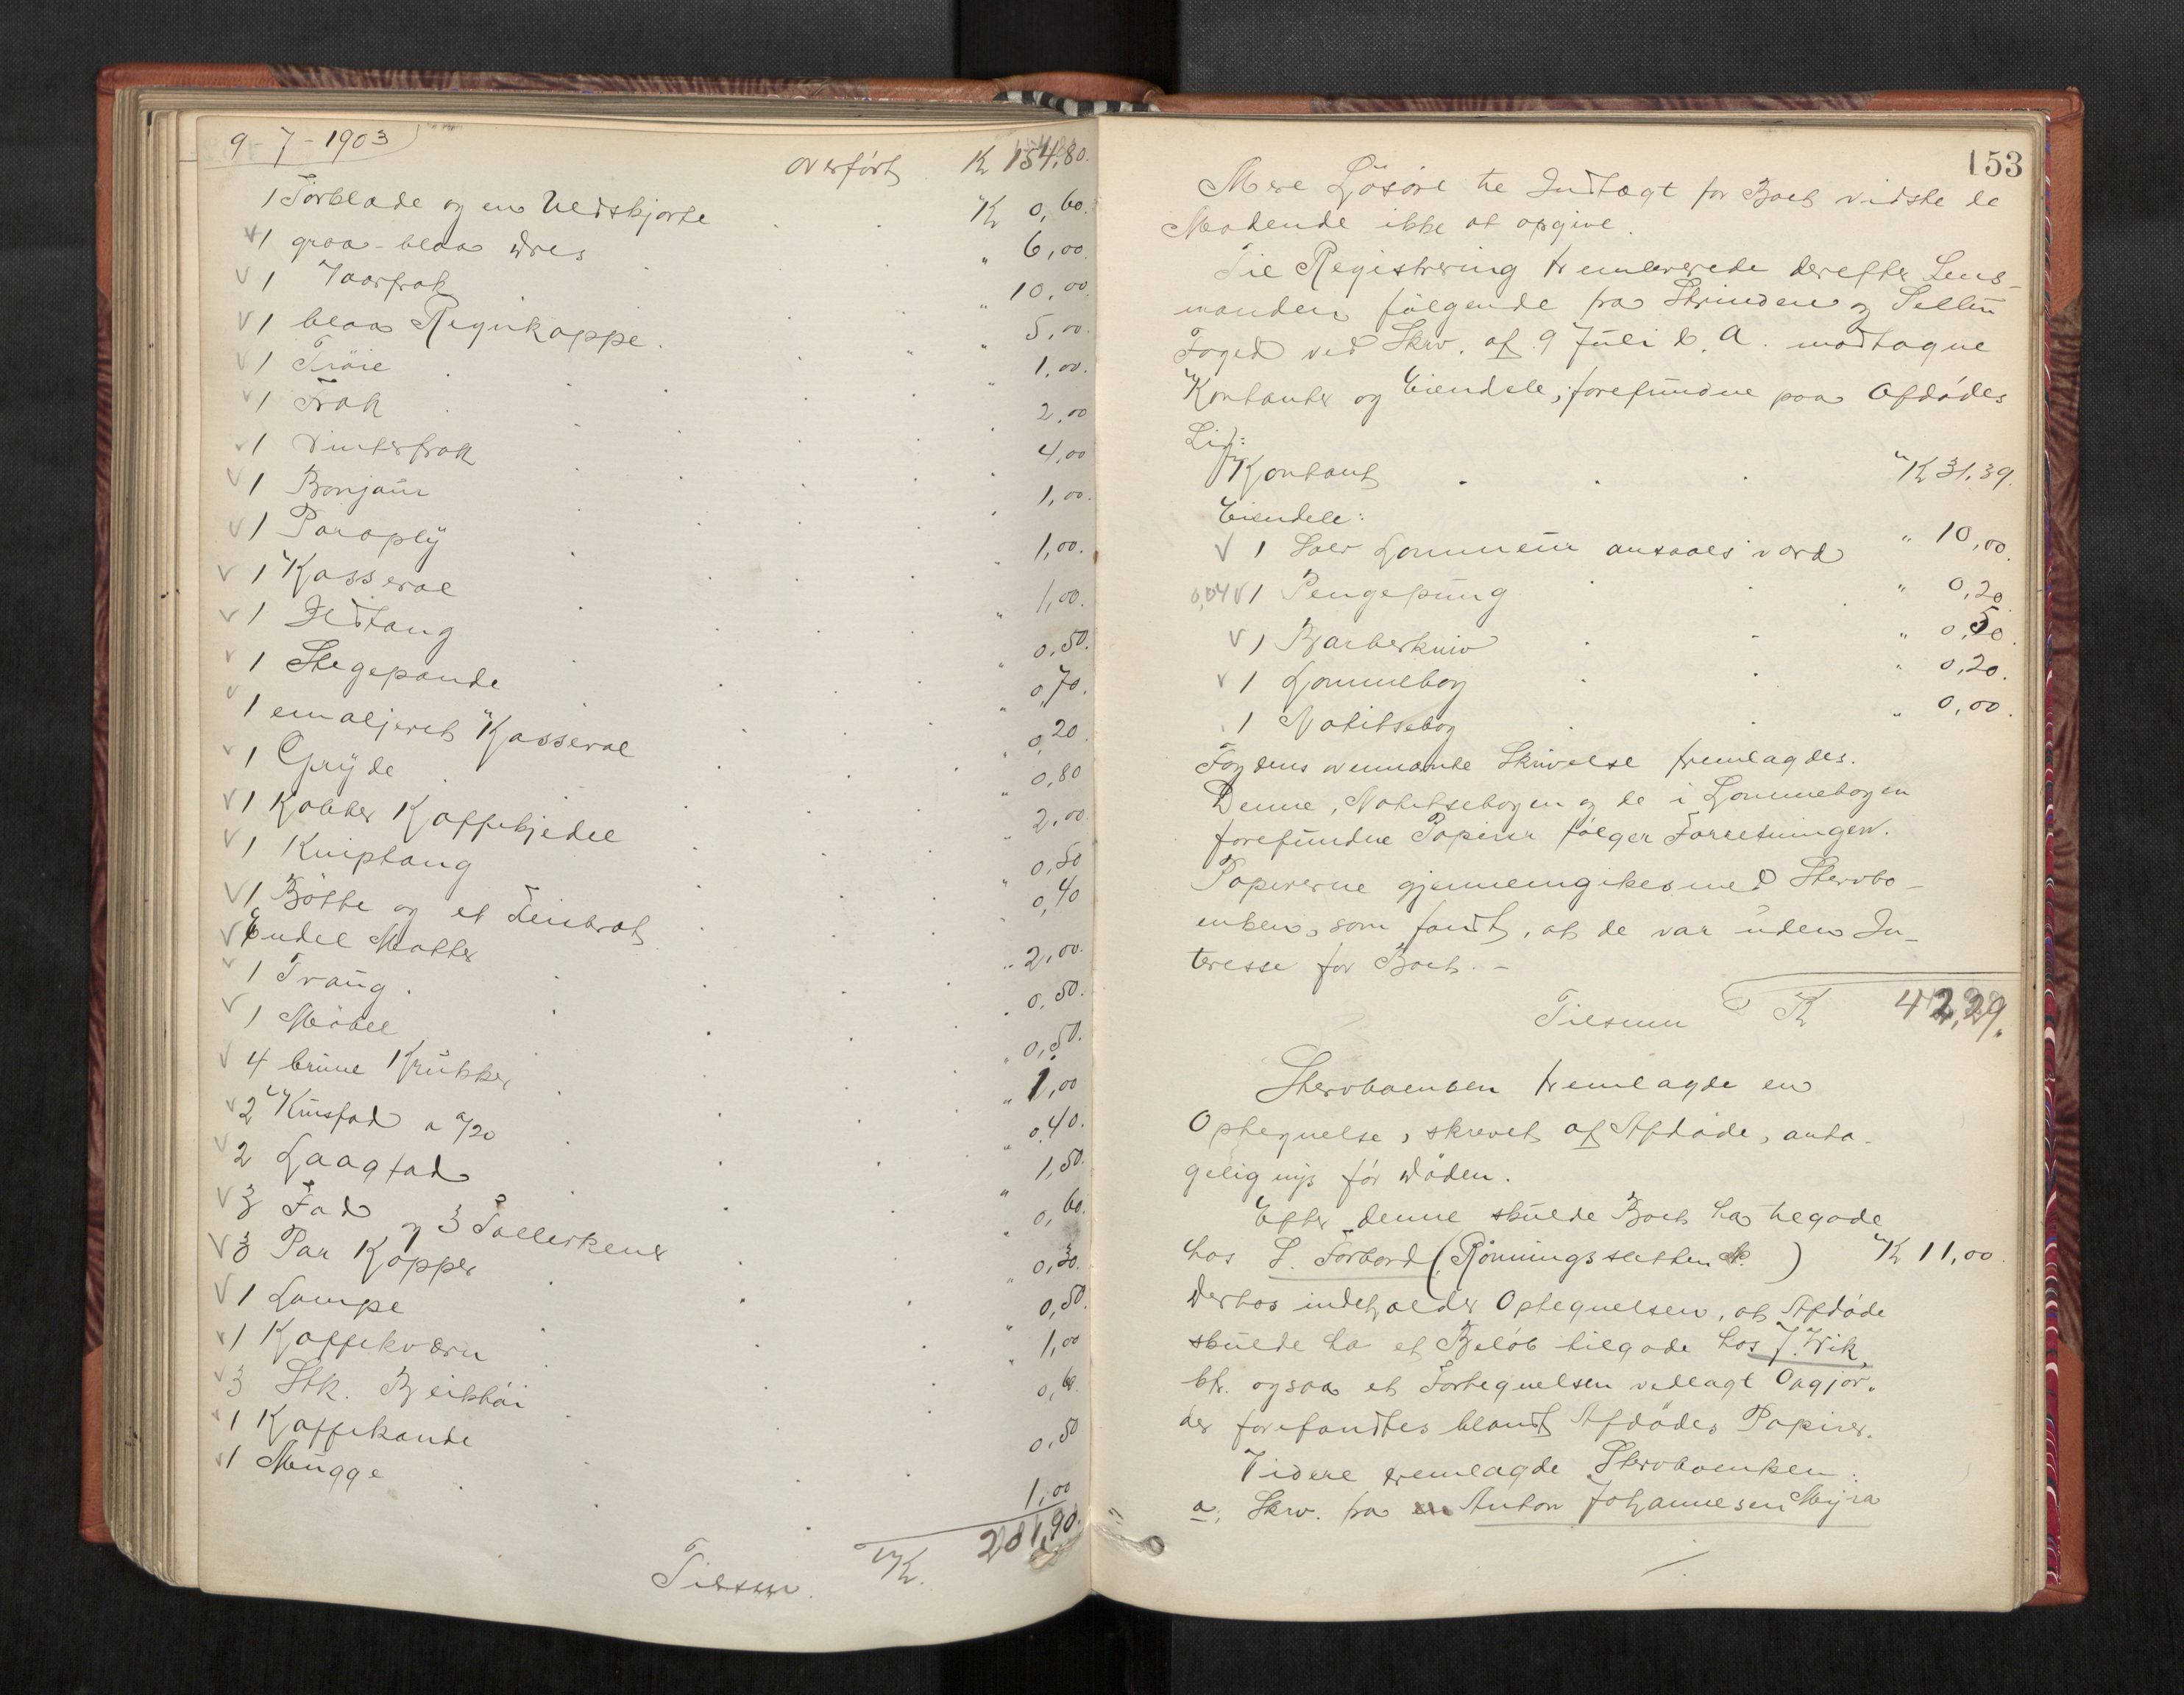 9-7-1903
overført K 154,80.
1 Forklæde og en Uldskjorte K 0,60.
1 graa-blaa Dres " 6,00.
1 Vaarfrak " 10,00.
1 blaa Regnkappe. " 5,00.
1 Trøie " 1,00.
1 Frak 2,00
1 Vinterfrak 4,00
1 Bonjour 1,00.
1 Paraply 1,00.
1 Kasserol 1,00.
1 Ildtang 0,50.
1 Stegepande 0,70.
1 emaljeret Kasserol 0,20
1 Gryde 0,80
1 Kobber Kaffekjedel 2,00
1 Kniptang 0,50
1 Bøtte og et 0,40
Endel Matter 2,00.
1 Traug. 0,50.
1 Møbel 0,50.
4 brune Krukker 1,00
2 Kumfad a 0/20 0,40.
2 Laagfad 1,50.
3 Fad og 3 Tallerkener 0,60.
3 Par Kopper 0,30.
1 Lampe 0,50.
1 Kaffekværn 1,00
3 Stk. Bliktøi 0,60.
1 Kaffekande 0,50
1 Mugge 1,00
Tilsum. K. 201,90.
153
Mere Løsøre til Indtægt for Boet vidste de
Mødende ikke at opgive.
Til Registrering fremleverede derefter Lens-
manden følgende fra Strinden og Selbu
Foged ved Skrv. af 9 Juli d. A. modtagne
Kontanter og Eiendele, forefundne paa Afdødes
Lig:
Kontant K 31,39.
Eiendele:
1 Sølv Lommeur ansaaes værd " 10,00.
0,04 1 Pengepung " 0,20
1 Barberkniv " 0,50.
1 Lommebog " 0,20.
1 Notitsebog " 0,00.
Fogdens ovennævnte Skrivelse fremlagdes.
Denne, Notitsebogen og de i Lommebogen
forefundne Papirer følger Forretningen.
Papirerne gjennemgikes med Stervbo-
enken, som fandt, at de var uden In-
teresse for Boet. -
Tilsum K 42,29.
Stervboenken fremlagde en
Optegnelse, skrevet af Afdøde, anta-
gelig nys før Døden.
Efter denne skulde Boet ha tilgode
hos L. Forbord (Rønningsletten) K 11,00.
Derhos indeholder Optegnelsen, at Afdøde
skulde ha et Beløb tilgode hos J. Wik,
kfr. ogsaa et Fortegnelsen vedlagt Opgjør,
der forefandtes blandt Afdødes Papirer.
Videre fremlagde Stervboenken:
a, Skrv. fra Anton Johannesen Myra